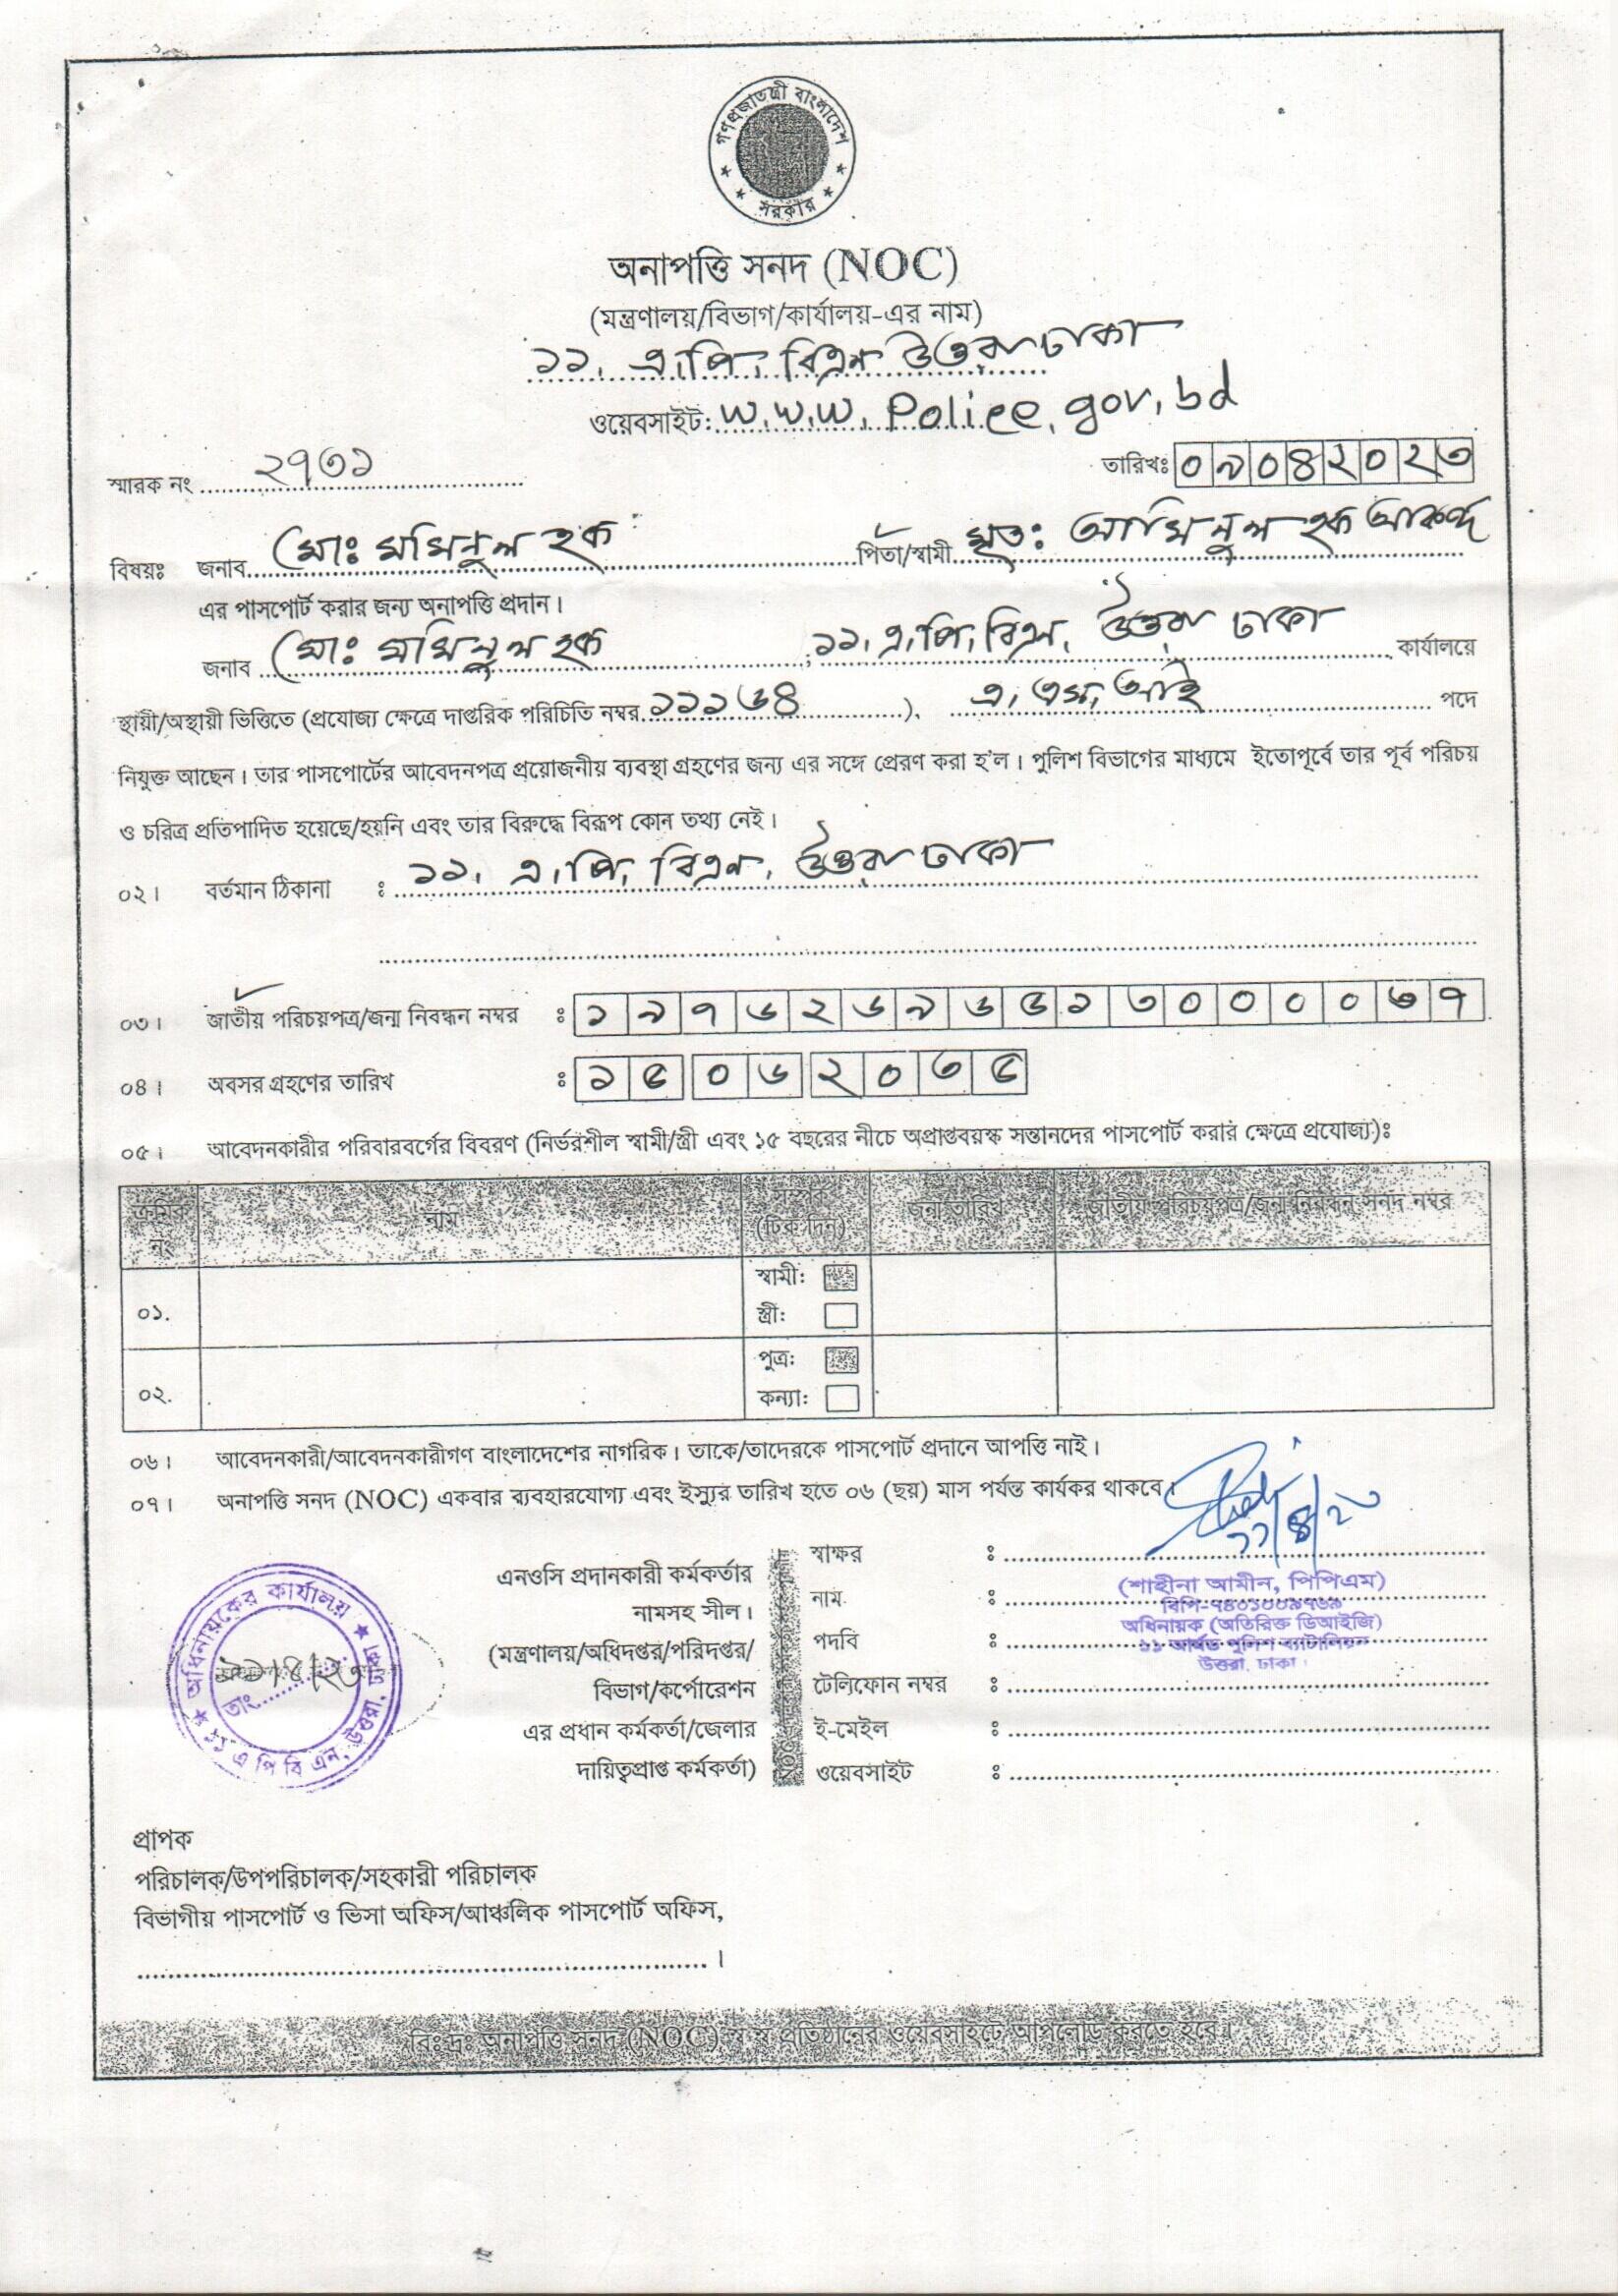 গণপ্রজাতন্ত্রী বাংলাদেশ
সরকার
অনাপত্তি সনদ (NOC)
(মন্ত্রণালয়/বিভাগ/কার্যালয়-এর নাম)
১১, এ,পি, বিএন উত্তরা ঢাকা
ওয়েবসাইট: w.w.w. Police, gov, bd
স্মারক নং ২৭৩১ তারিখঃ ০৯০৪২০২৩
বিষয়ঃ জনাব মোঃ মমিনুল হক পিতা/স্বামী মৃতঃ আমিনুল হক আকন্দ
এর পাসপোর্ট করার জন্য অনাপত্তি প্রদান।
জনাব মোঃ মমিনুল হক , ১১, এ,পি,বিএন, উত্তরা ঢাকা কার্যালয়ে
স্থায়ী/অস্থায়ী ভিত্তিতে (প্রযোজ্য ক্ষেত্রে দাপ্তরিক পরিচিতি নম্বর ১১১৬৪ ), এ, এস, আই পদে
নিযুক্ত আছেন। তার পাসপোর্টের আবেদনপত্র প্রয়োজনীয় ব্যবস্থা গ্রহণের জন্য এর সঙ্গে প্রেরণ করা হ'ল। পুলিশ বিভাগের মাধ্যমে ইতোপূর্বে তার পূর্ব পরিচয়
ও চরিত্র প্রতিপাদিত হয়েছে/হয়নি এবং তার বিরুদ্ধে বিরূপ কোন তথ্য নেই।
০২। বর্তমান ঠিকানা ঃ ১১, এ,পি, বিএন, উত্তরা ঢাকা
০৩। জাতীয় পরিচয়পত্র/জন্ম নিবন্ধন নম্বর ঃ ১৯৭৬২৬৯৬৫১৩০০০০৬৭
০৪। অবসর গ্রহণের তারিখ ঃ ১৫০৬২০৩৫
০৫। আবেদনকারীর পরিবারবর্গের বিবরণ (নির্ভরশীল স্বামী/স্ত্রী এবং ১৫ বছরের নীচে অপ্রাপ্তবয়স্ক সন্তানদের পাসপোর্ট করার ক্ষেত্রে প্রযোজ্য)ঃ
ক্রমিক নং নাম সম্পর্ক (টিক দিন) জন্ম তারিখ জাতীয় পরিচয়পত্র/জন্ম নিবন্ধন সনদ নম্বর
০১. স্বামী:
স্ত্রী:
০২. পুত্র:
কন্যা:
০৬। আবেদনকারী/আবেদনকারীগণ বাংলাদেশের নাগরিক। তাকে/তাদেরকে পাসপোর্ট প্রদানে আপত্তি নাই।
০৭। অনাপত্তি সনদ (NOC) একবার ব্যবহারযোগ্য এবং ইস্যুর তারিখ হতে ০৬ (ছয়) মাস পর্যন্ত কার্যকর থাকবে।
এনওসি প্রদানকারী কর্মকর্তার
নামসহ সীল।
(মন্ত্রণালয়/অধিদপ্তর/পরিদপ্তর/
বিভাগ/কর্পোরেশন
এর প্রধান কর্মকর্তা/জেলার
দায়িত্বপ্রাপ্ত কর্মকর্তা)
স্বাক্ষর ঃ
নাম ঃ
পদবি ঃ
টেলিফোন নম্বর ঃ
ই-মেইল ঃ
ওয়েবসাইট ঃ
(শাহীনা আমীন, পিপিএম)
বিপি-৭৪০১০০৯৭৬৯
অধিনায়ক (অতিরিক্ত ডিআইজি)
১১ আর্মড পুলিশ ব্যাটালিয়ন
উত্তরা, ঢাকা।
অধিনায়কের কার্যালয়
তাং
১১ এ পি বি এন, উত্তরা, ঢাকা
প্রাপক
পরিচালক/উপপরিচালক/সহকারী পরিচালক
বিভাগীয় পাসপোর্ট ও ভিসা অফিস/আঞ্চলিক পাসপোর্ট অফিস,
বিঃদ্রঃ অনাপত্তি সনদ (NOC) স্ব স্ব প্রতিষ্ঠানের ওয়েবসাইটে আপলোড করতে হবে।